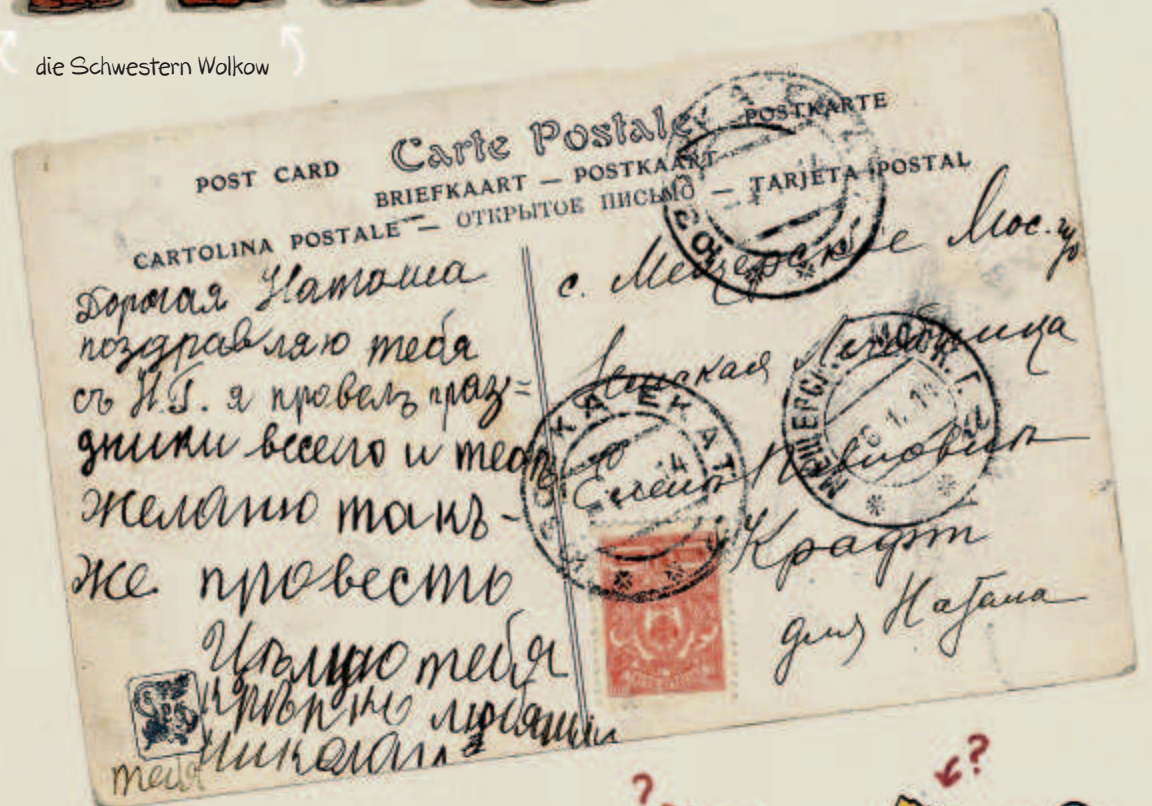 die Schwestern Wolkow
POST CARD Carte Postale POSTKARTE
BRIEFKAART — POSTKAART
CARTOLINA POSTALE — ОТКРЫТОЕ ПИСЬМО — TARJETA POSTAL
Дорогая Наташа
поздравляю тебя
съ Н.Г. я провелъ праз=
дники весело и тебѣ
желаю такъ-
же провести
Цѣлую тебя
крѣпко любящий
Николай
тебя
с. Мещерское Мос. г.
Лечебница
Елены
Крафт
для Наташи
МЕЩЕРСК. МОСК. Г.
6.1.14
ЕКАТ
14
?
?